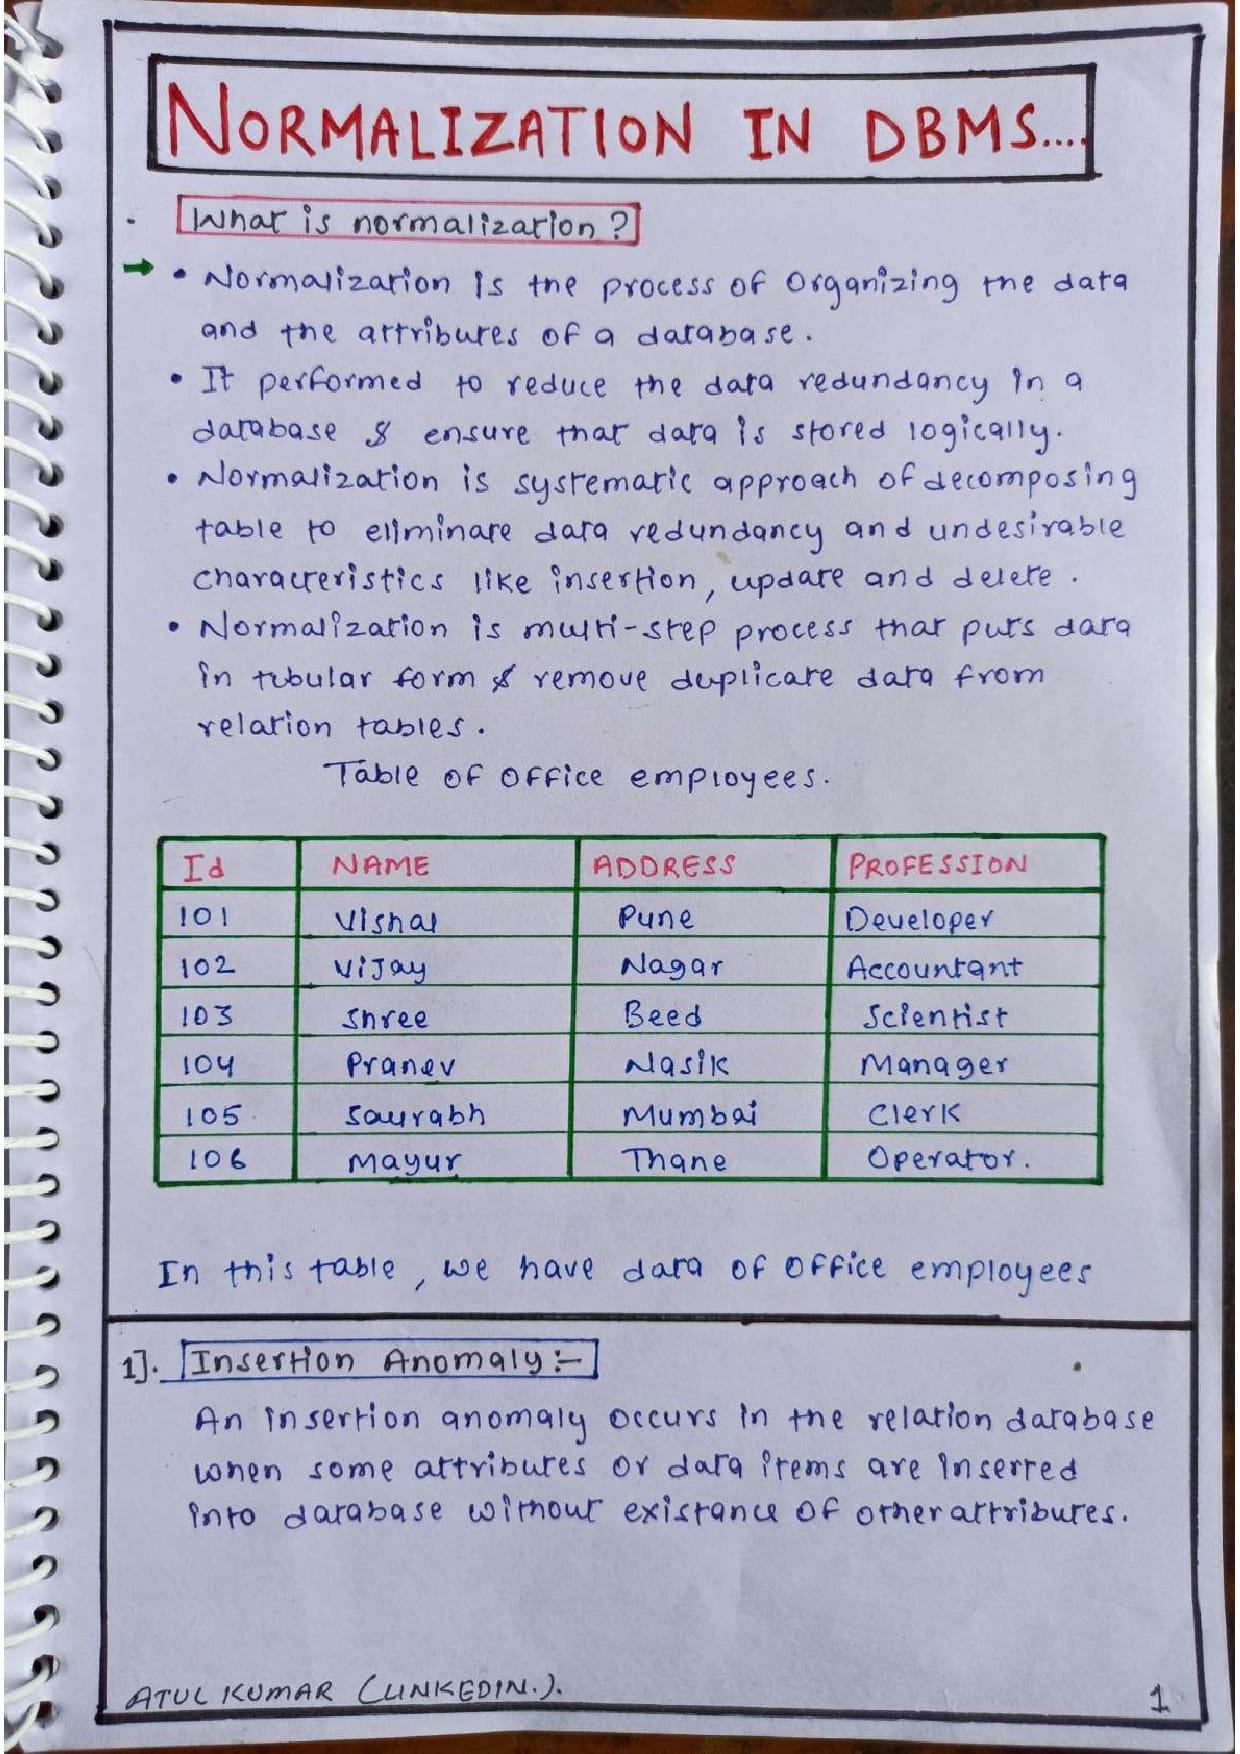 NORMALIZATION IN DBMS....
What is normalization ?
• Normalization is the process of Organizing the data
and the attributes of a database.
• It performed to reduce the data redundancy in a
database & ensure that data is stored logically.
• Normalization is systematic approach of decomposing
table to eliminate data redundancy and undesirable
characteristics like insertion, update and delete.
• Normalization is multi-step process that puts data
in tubular form & remove duplicate data from
relation tables.
Table of office employees.
Id NAME ADDRESS PROFESSION
101 Vishal Pune Developer
102 Vijay Nagar Accountant
103 Shree Beed Scientist
104 Pranev Nasik Manager
105 Saurabh Mumbai Clerk
106 Mayur Thane Operator.
In this table, we have data of office employees
1]. Insertion Anomaly :-
An insertion anomaly occurs in the relation database
when some attributes or data items are inserted
into database without existance of other attributes.
ATUL KUMAR (LINKEDIN.). 1